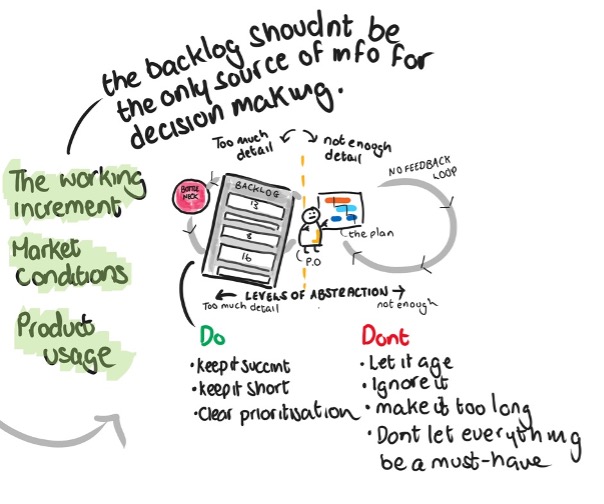 the backlog shoudnt be
the only source of info for
decision making.
The working
increment
Market
Conditions
Product
usage
Too much
detail
not enough
detail
NO FEEDBACK
LOOP
BOTTLE
NECK
BACKLOG
13
8
16
P.O
the plan
LEVELS OF ABSTRACTION
Too much detail
not enough
Do
• keep it succint
• keep it short
• Clear prioritisation
Dont
• Let it age
• Ignore it
• make it too long
• Dont let everything
be a must-have